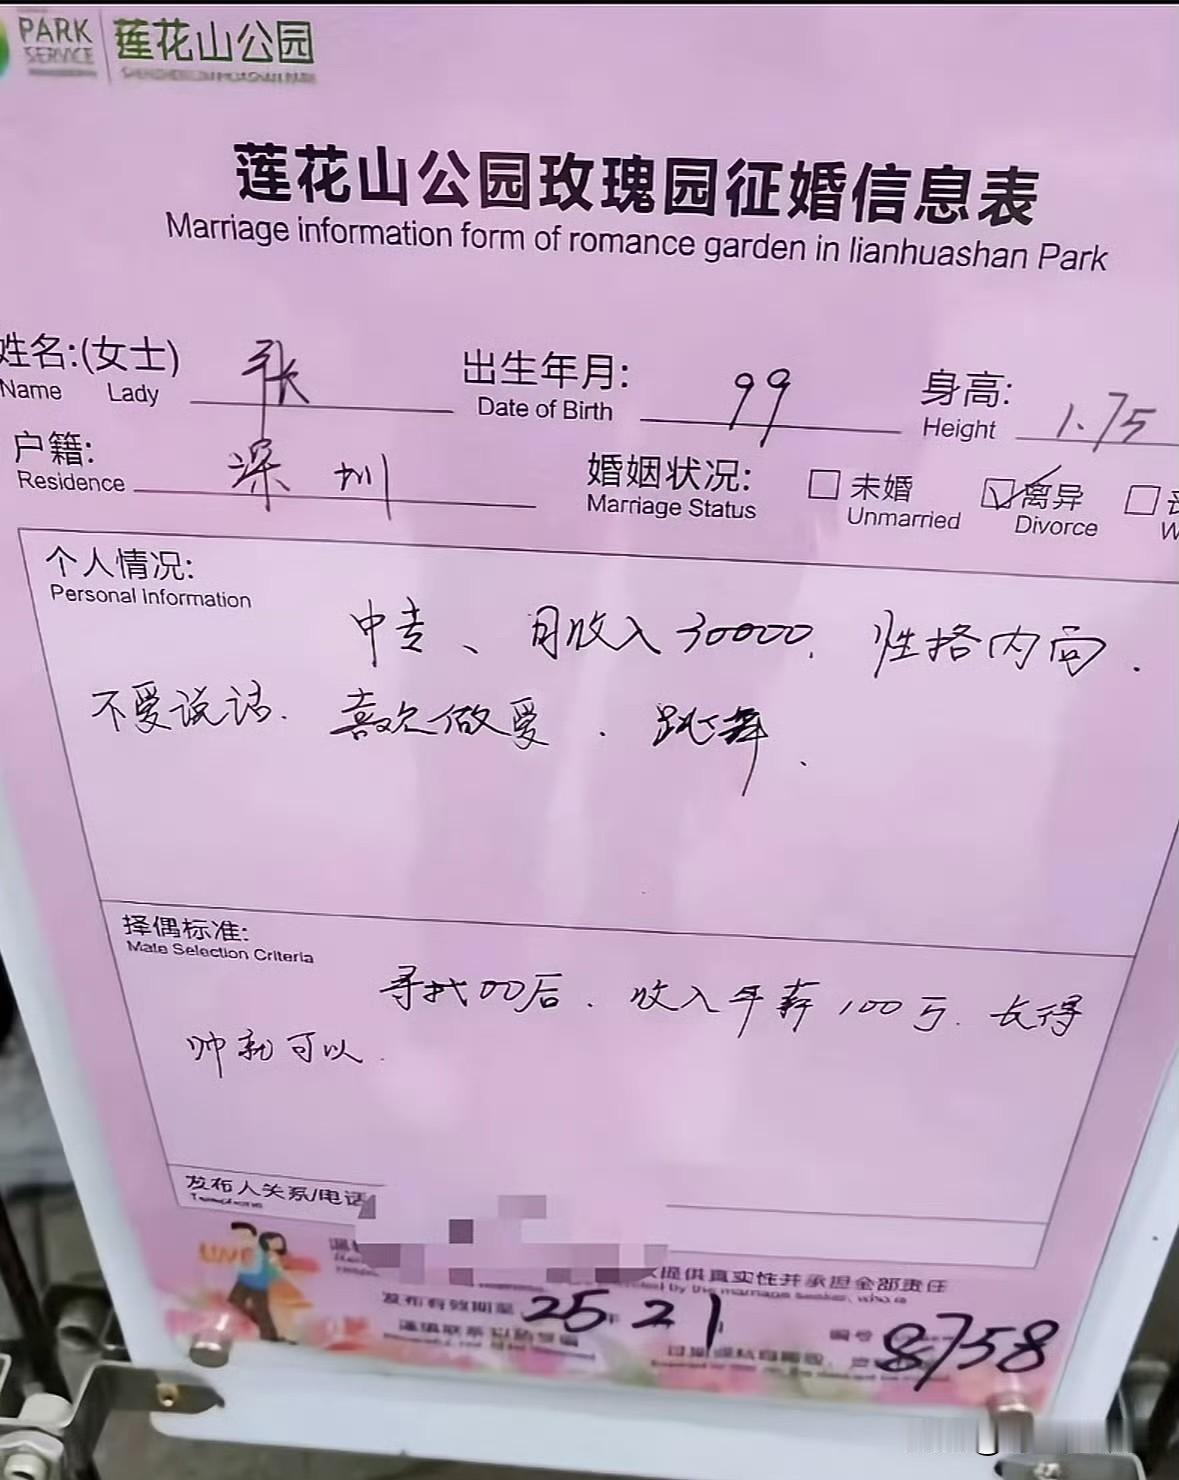 PARK
SERVICE
莲花山公园
莲花山公园玫瑰园征婚信息表
Marriage information form of romance garden in lianhuashan Park
姓名:(女士) 张 出生年月: 99 身高: 1.75
Name Lady Date of Birth Height
户籍: 深圳 婚姻状况: 未婚 离异
Residence Marriage Status Unmarried Divorce
个人情况:
Personal Information
中专、月收入30000. 性格内向.
不爱说话. 喜欢做爱. 跳舞.
择偶标准:
Mate Selection Criteria
寻找00后. 收入年薪100万. 长得
帅就可以.
发布人关系/电话
Telephone
LOVE
提供真实性并承担全部责任
by the marriage seeker, who is
发布有效期至 25年 2 1
编号 8758